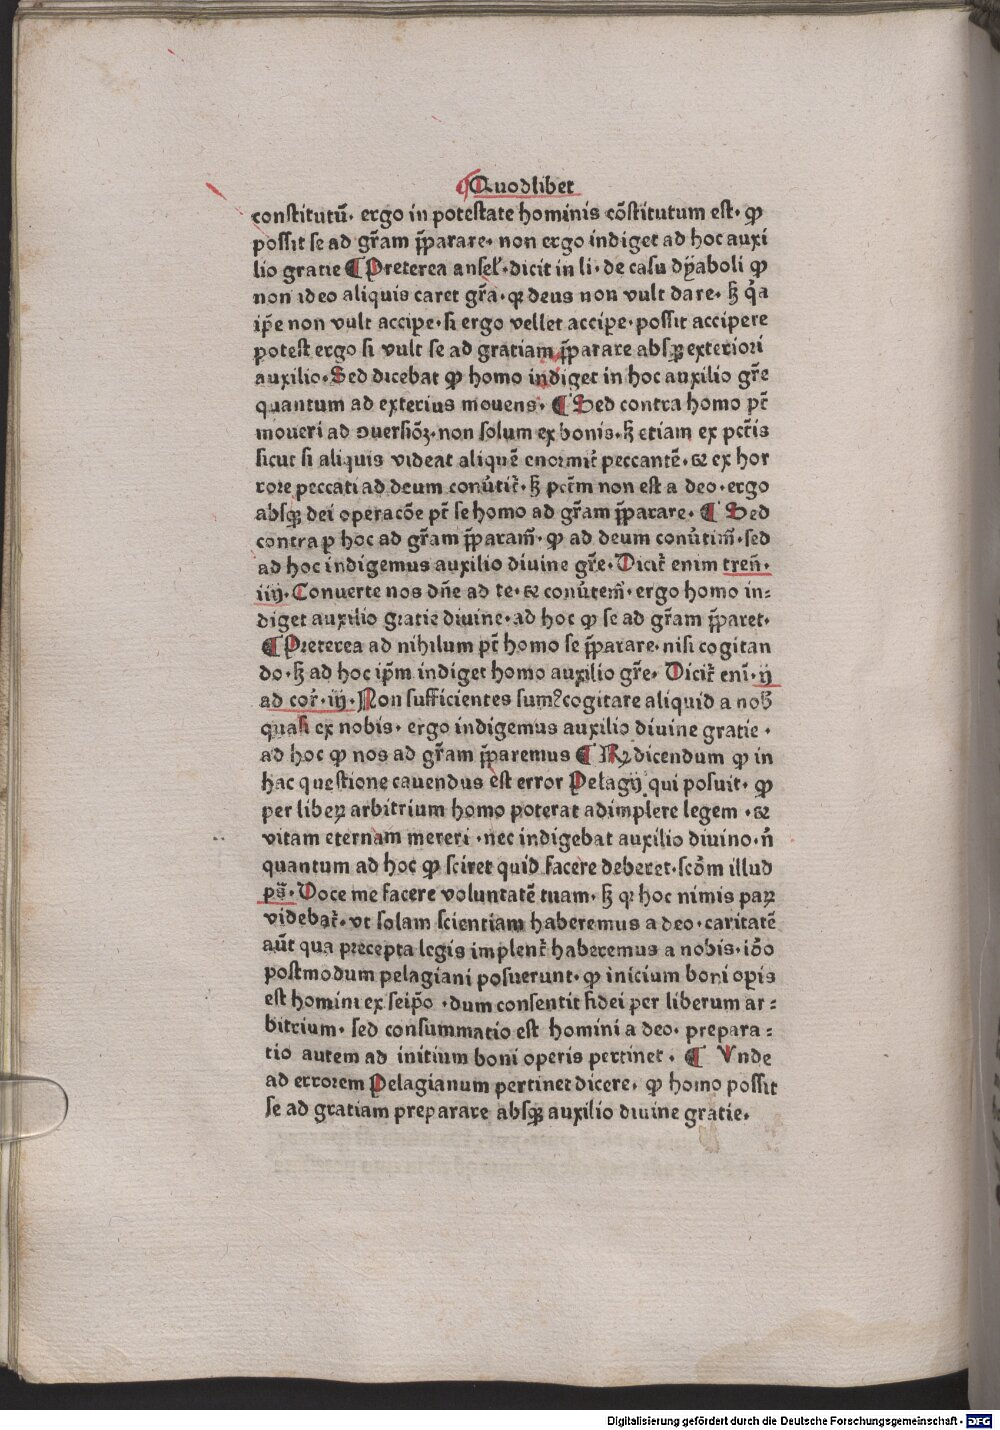 Quodlibet
constitutū. ergo in potestate hominis cōstitutum est. ꝙ
possit se ad gr̄am p̄parare. non ergo indiget ad hoc auxi
lio gratie ¶ Preterea ansel̓. dicit in li. de casu dyaboli ꝙ
non ideo aliquis caret gr̄a. qꝛ deus non vult dare. sꝫ q̓a
ip̄e non vult accipe. si ergo vellet accipe. possit accipere
potest ergo si vult se ad gratiam p̄parare absqꝫ exteriori
auxilio. Sed dicebat ꝙ homo indiget in hoc auxilio gr̄e
quantum ad exterius mouens. ¶ Sed contra homo pt̄
moueri ad ꝯuersiōꝫ. non solum ex bonis. sꝫ etiam ex pctīs
sicut si aliquis videat aliquē enormit̄ peccantē. ⁊ ex hor
rore peccati ad deum conūtit̄. sꝫ pctm̄ non est a deo. ergo
absqꝫ dei operacōe pt̄ se homo ad gr̄am p̄parare. ¶ Sed
contra p hoc ad gr̄am p̄param̄. ꝙ ad deum conūtim̄. sed
ad hoc indigemus auxilio diuine gr̄e. Dicit̄ enim tren̄.
iiij. Conuerte nos dn̄e ad te. ⁊ conūtem̄. ergo homo in⸗
diget auxilio gratie diuine. ad hoc ꝙ se ad gr̄am p̄paret.
¶ Preterea ad nihilum pt̄ homo se p̄parare. nisi cogitan
do. sꝫ ad hoc ip̄m indiget homo auxilio gr̄e. Dicit̄ eni. ij
ad cor̄. iij. Non sufficientes sumꝰ cogitare aliquid a nob̄
quasi ex nobis. ergo indigemus auxilio diuine gratie.
ad hoc ꝙ nos ad gr̄am p̄paremus ¶ Rꝫ dicendum ꝙ in
hac questione cauendus est error Pelagij qui posuit. ꝙ
per liberꝝ arbitrium homo poterat adimplere legem. ⁊
vitam eternam mereri. nec indigebat auxilio diuino. n̄
quantum ad hoc ꝙ sciret quid facere deberet. scōm illud
ps̄. Doce me facere voluntatē tuam. sꝫ qꝛ hoc nimis paꝝ
videbat̄. vt solam scientiam haberemus a deo. caritatē
aūt qua precepta legis implent̄ haberemus a nobis. iōo
postmodum pelagiani posuerunt. ꝙ inicium boni opis
est homini ex seip̄o. dum consentit fidei per liberum ar⸗
bitrium. sed consummatio est homini a deo. prepara⸗
tio autem ad initium boni operis pertinet. ¶ Vnde
ad errorem Pelagianum pertinet dicere. ꝙ homo possit
se ad gratiam preparare absqꝫ auxilio diuine gratie.
Digitalisierung gefördert durch die Deutsche Forschungsgemeinschaft - DFG